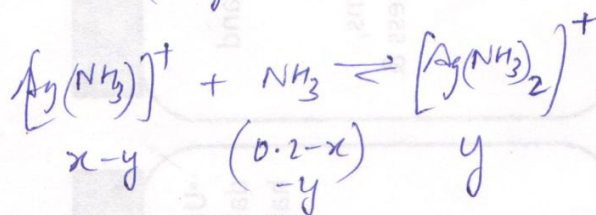 [Ag(NH₃)]⁺ + NH₃ ⇌ [Ag(NH₃)₂]⁺
x-y (0.2-x) y
-y